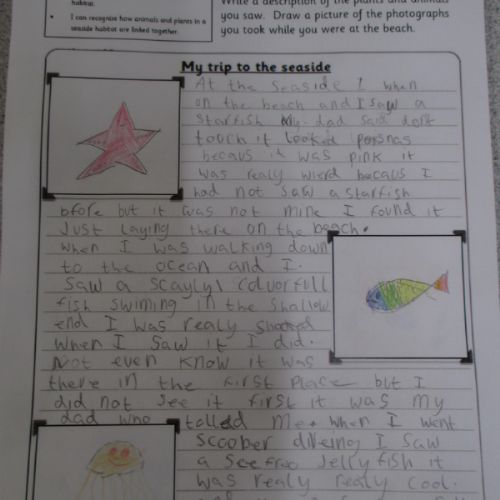 habitat.
I can recognise how animals and plants in a
seaside habitat are linked together.
Write a description of the plants and animals
you saw. Draw a picture of the photographs
you took while you were at the beach.
My trip to the seaside
At the seaside I when
on the beach and I saw a
starfish My dad said dont
touch it looked
becaus it was pink it
was realy wierd becaus I
had not saw a starfish
bfore but it was not mine I found it
Just laying there on the beach.
when I was walking down
to the ocean and I.
Saw a scaylyl colourfull
fish swiming in the shallow
end I was realy shocked
when I saw it I did.
Not even know it was
there in the first place but I
did not see it first it was my
dad who tolled me. when I went
scoober diveing I saw
a see froo Jelly fish it
was realy realy cool.